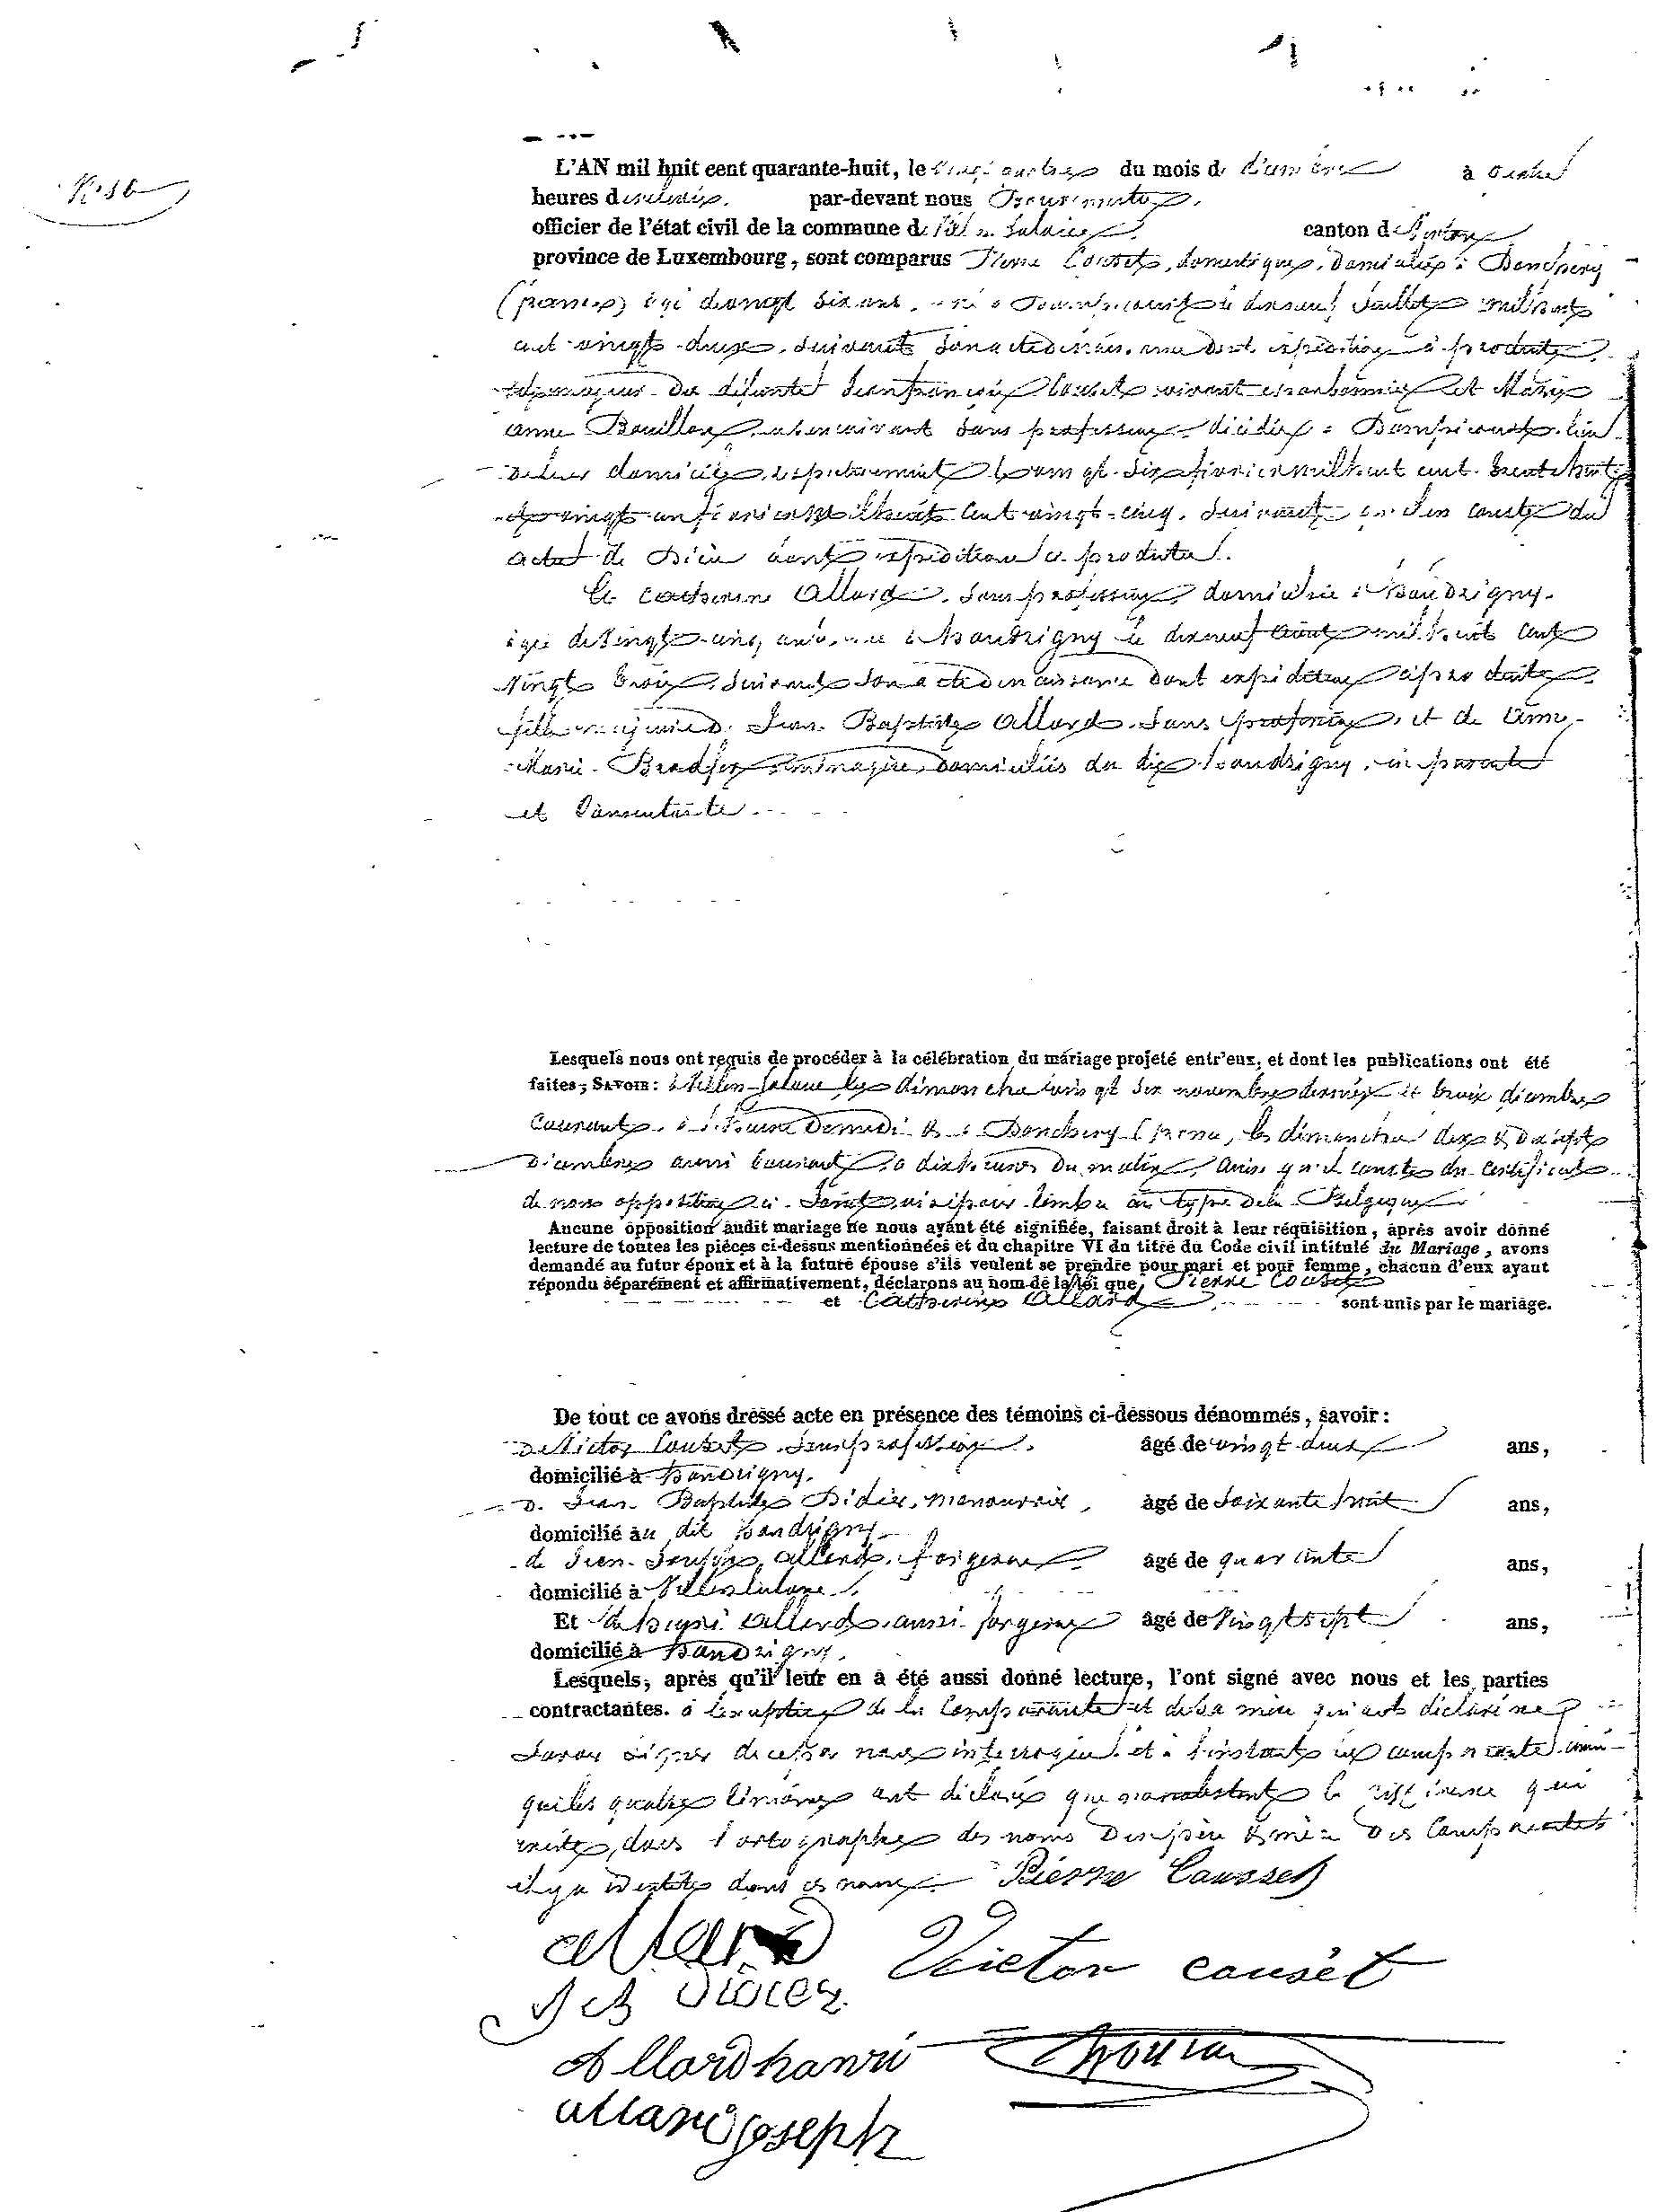 N° 86
L'AN mil huit cent quarante-huit, le vingt quatre du mois de décembre à quatre
heures par-devant nous bourgmestre,
officier de l'état civil de la commune de Villers canton de
province de Luxembourg, sont comparus Pierre Causet, domestique, domicilié à Donchery
(france) agé de vingt six ans, né à Dompicourt le dixneuf Juillet mil huit
cent vingt-deux, suivant son acte de naissance dont expédition est produite,
fils majeur de défunts Jean françois Causet vivant et Marie
anne Bouillon, en son vivant sans profession, décédés à Dompicourt, lieu
de leur domicile, respectivement le vingt-six février mil huit cent trente huit
et vingt un février mil huit cent vingt-cinq, suivant qu'il en conste des
actes de Décès dont expéditions est produites.
Et Catherine Allard, sans profession, domiciliée à Baudrigny,
agée de Vingt-cinq ans, née à Baudrigny le dixneuf Août mil huit cent
Vingt trois, suivant son acte de naissance dont expédition est produite,
fille majeure de Jean Baptiste Allard, sans profession, et de Anne
Marie Bradfer, ménagère, domiciliés au dit Baudrigny, ici présents
et Consentants.
Lesquels nous ont requis de procéder à la célébration du mariage projeté entr'eux, et dont les publications ont été
faites; SAVOIR: à Villers les dimanche vingt six novembre dernier et trois décembre
Courant, à l'heure de midi & à Donchery (france, les dimanches dix & dixsept
décembre aussi courant, à dix heures du matin, ainsi qu'il conste du certificat
de non opposition ci-joint, visé pour timbre au type de la Belgique
Aucune opposition audit mariage ne nous ayant été signifiée, faisant droit à leur réquisition, après avoir donné
lecture de toutes les pièces ci-dessus mentionnées et du chapitre VI du titre du Code civil intitulé du Mariage, avons
demandé au futur époux et à la future épouse s'ils veulent se prendre pour mari et pour femme, chacun d'eux ayant
répondu séparément et affirmativement, déclarons au nom de la loi que Pierre Causet
et Catherine Allard sont unis par le mariage.
De tout ce avons dressé acte en présence des témoins ci-dessous dénommés, savoir:
De Victor Causet, sans profession, âgé de vingt deux ans,
domicilié à Baudrigny,
De Jean Baptiste Didier, manouvrier, âgé de Soixante huit ans,
domicilié au dit Baudrigny
de Jean-Joseph Allard, forgeron âgé de quarante ans,
domicilié à
Et de Henri Allard, aussi forgeron âgé de Vingt sept ans,
domicilié à Baudrigny.
Lesquels, après qu'il leur en a été aussi donné lecture, l'ont signé avec nous et les parties
contractantes. à l'exception de la Comparante et de sa mère qui ont déclaré ne
Savoir signer de ce par nous interrogées. et à l'instant les comparants ainsi
que les quatre témoins ont déclaré que nonobstant la différence qui
existe, dans l'ortographe des noms Des père & mère Des Comparants
il y a identité dans ces noms. Pierre Causset
Allard Victor causèt
J B Didier
Allard hanri
allard joseph